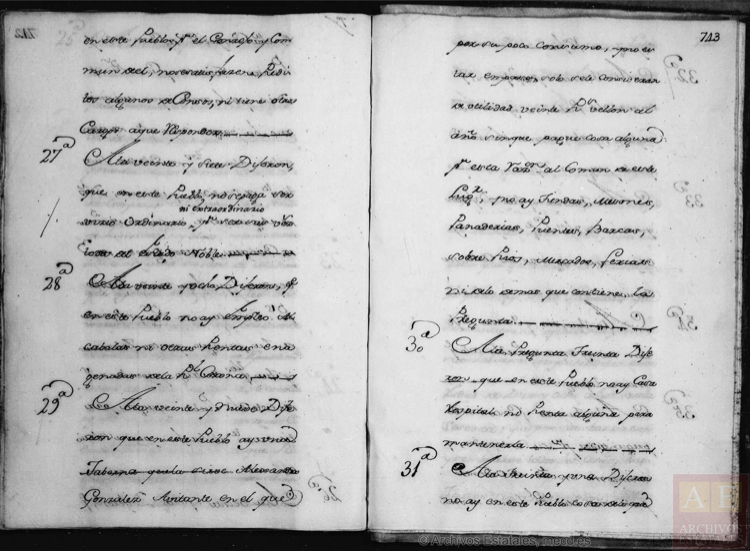 en este Pueblo pr el Conzejo y Com
mun del, no se
algunos de Censo, ni tiene otro
Cargo a que Responder
27ª
Ala veinte y siete Dijeron,
que en este Pueblo no se paga Ser
ni extraordinario
vizio Ordinario pr ser sus
del estado Noble
28ª
Ala veinte y ocho, Dijeron, q
en este Pueblo no ay Empleo Al
cabalas ni otras Rentas ena
genadas de la Rl Corona
29ª
Ala veinte y Nueve Dije
ron que en este Pueblo ay una
Taberna que la sirve
Gonzalez Avitante en el que
713
por su poco Consumo, y no es
tar, solo se la Considera
de utilidad veinte Rs vellon al
año sin que pague cosa alguna
pr esta al Comun de este
Lugr, y no ay Tiendas, Mesones,
Panaderias, Puentes, Barcas,
sobre Rios, Mercados, Ferias
ni de lo demas que contiene la
Pregunta
30ª
Ala Pregunta Treinta Dije
ron que en este Pueblo no ay Casa
Hospital ni Renta alguna para
mantenerla
31ª
Ala treinta y una Dijeron
no ay en este Pueblo cosa de lo que
© Archivos Estatales, mecd.es
AE
ARCHIVOS
ESTATALES